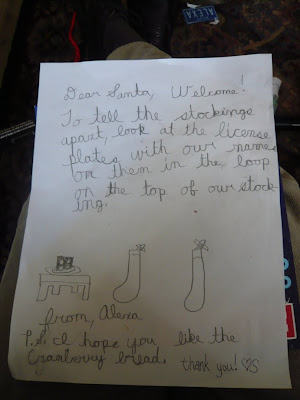 ALEXA
Dear Santa, Welcome!
To tell the stockings
apart, look at the license
plates, with our names
on them in the loop
on the top of our stock-
ing.
from, Alexa
P.S. I hope you like the
Cranberry bread. thank you! ♡S